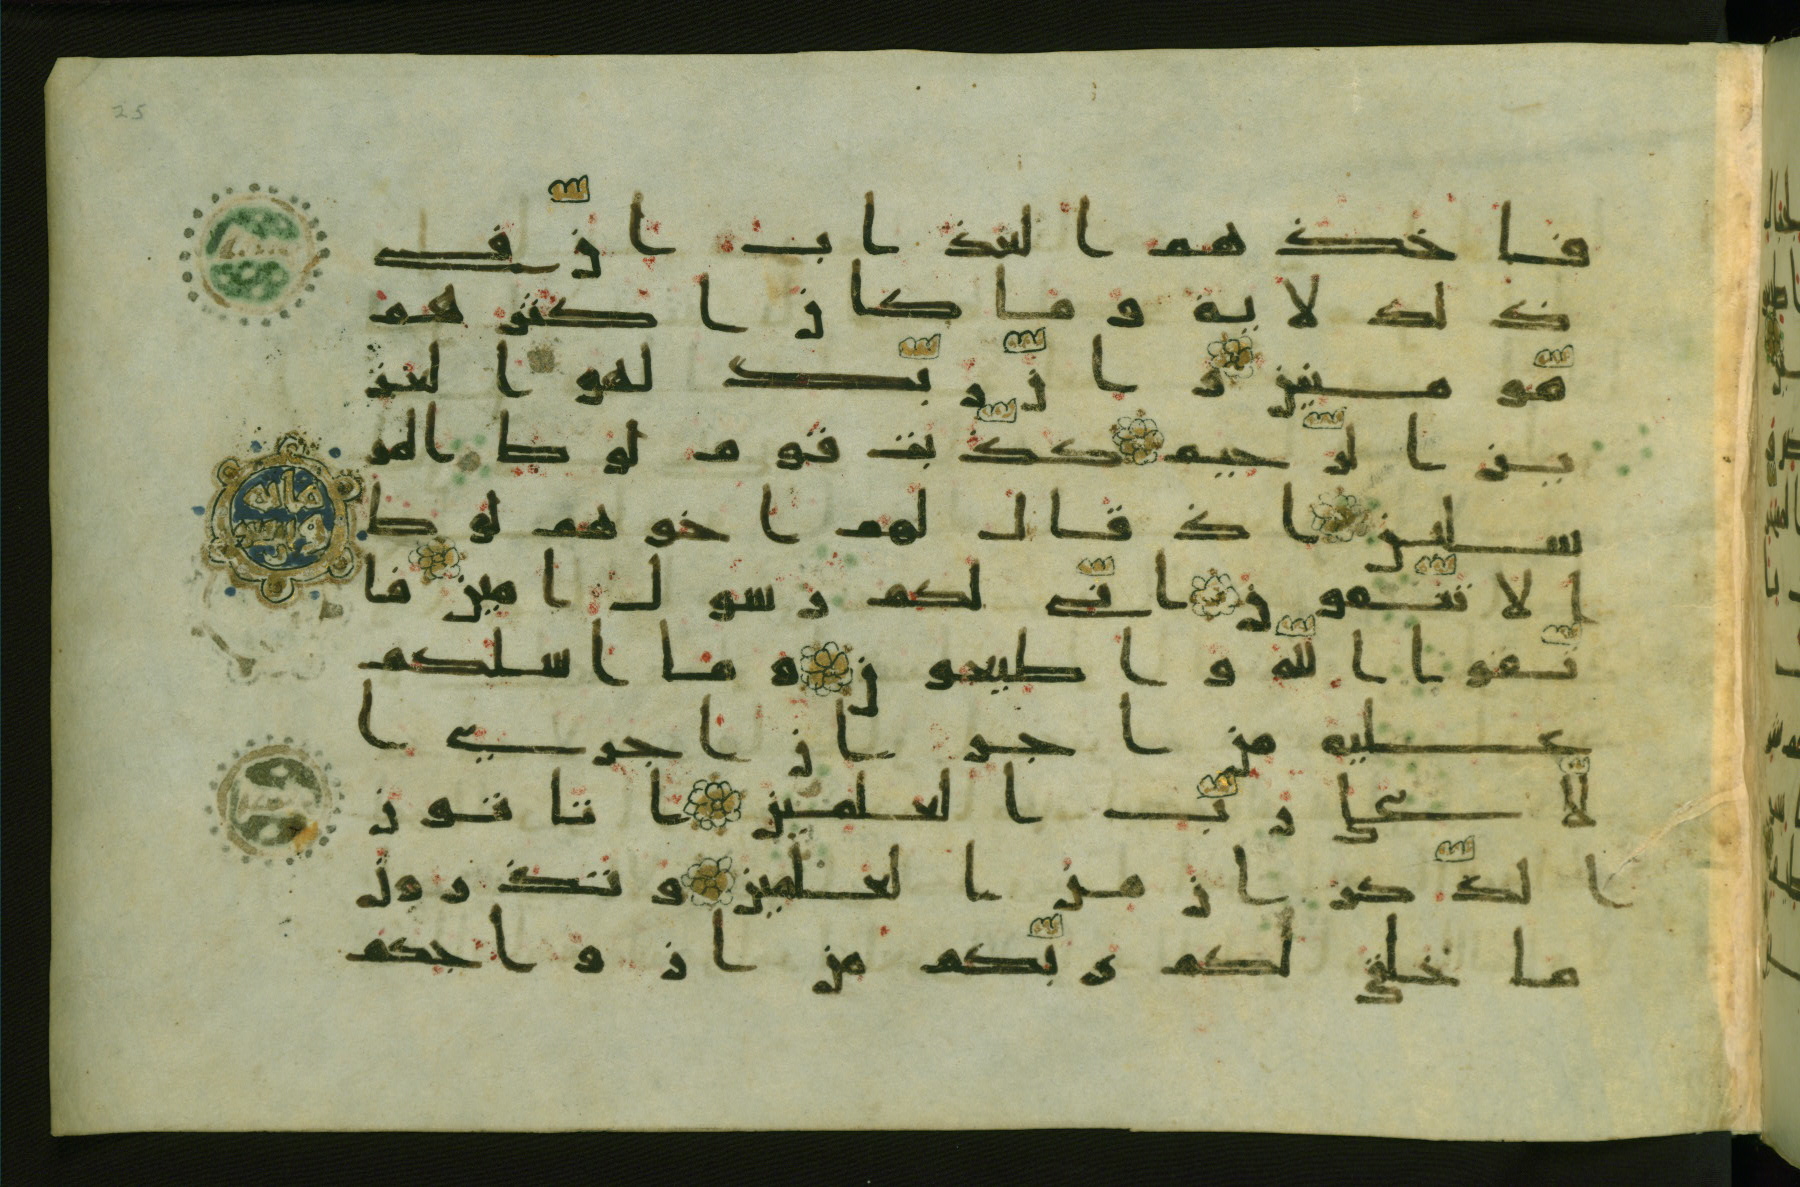 فاخذهم العذاب ان في
ذلك لاية وما كان اكثرهم
مومنين وان ربك لهو العز
يز الرحيم كذبت قوم لوط المر
سلين اذ قال لهم اخوهم لوط
الا تتقون اني لكم رسول امين فا
تقوا الله واطيعون وما اسلكم
عليه من اجر ان اجري ا
لا على رب العلمين اتاتون
الذكران من العلمين وتذرون
ما خلق لكم ربكم من ازواجكم
مايه
وستون
25